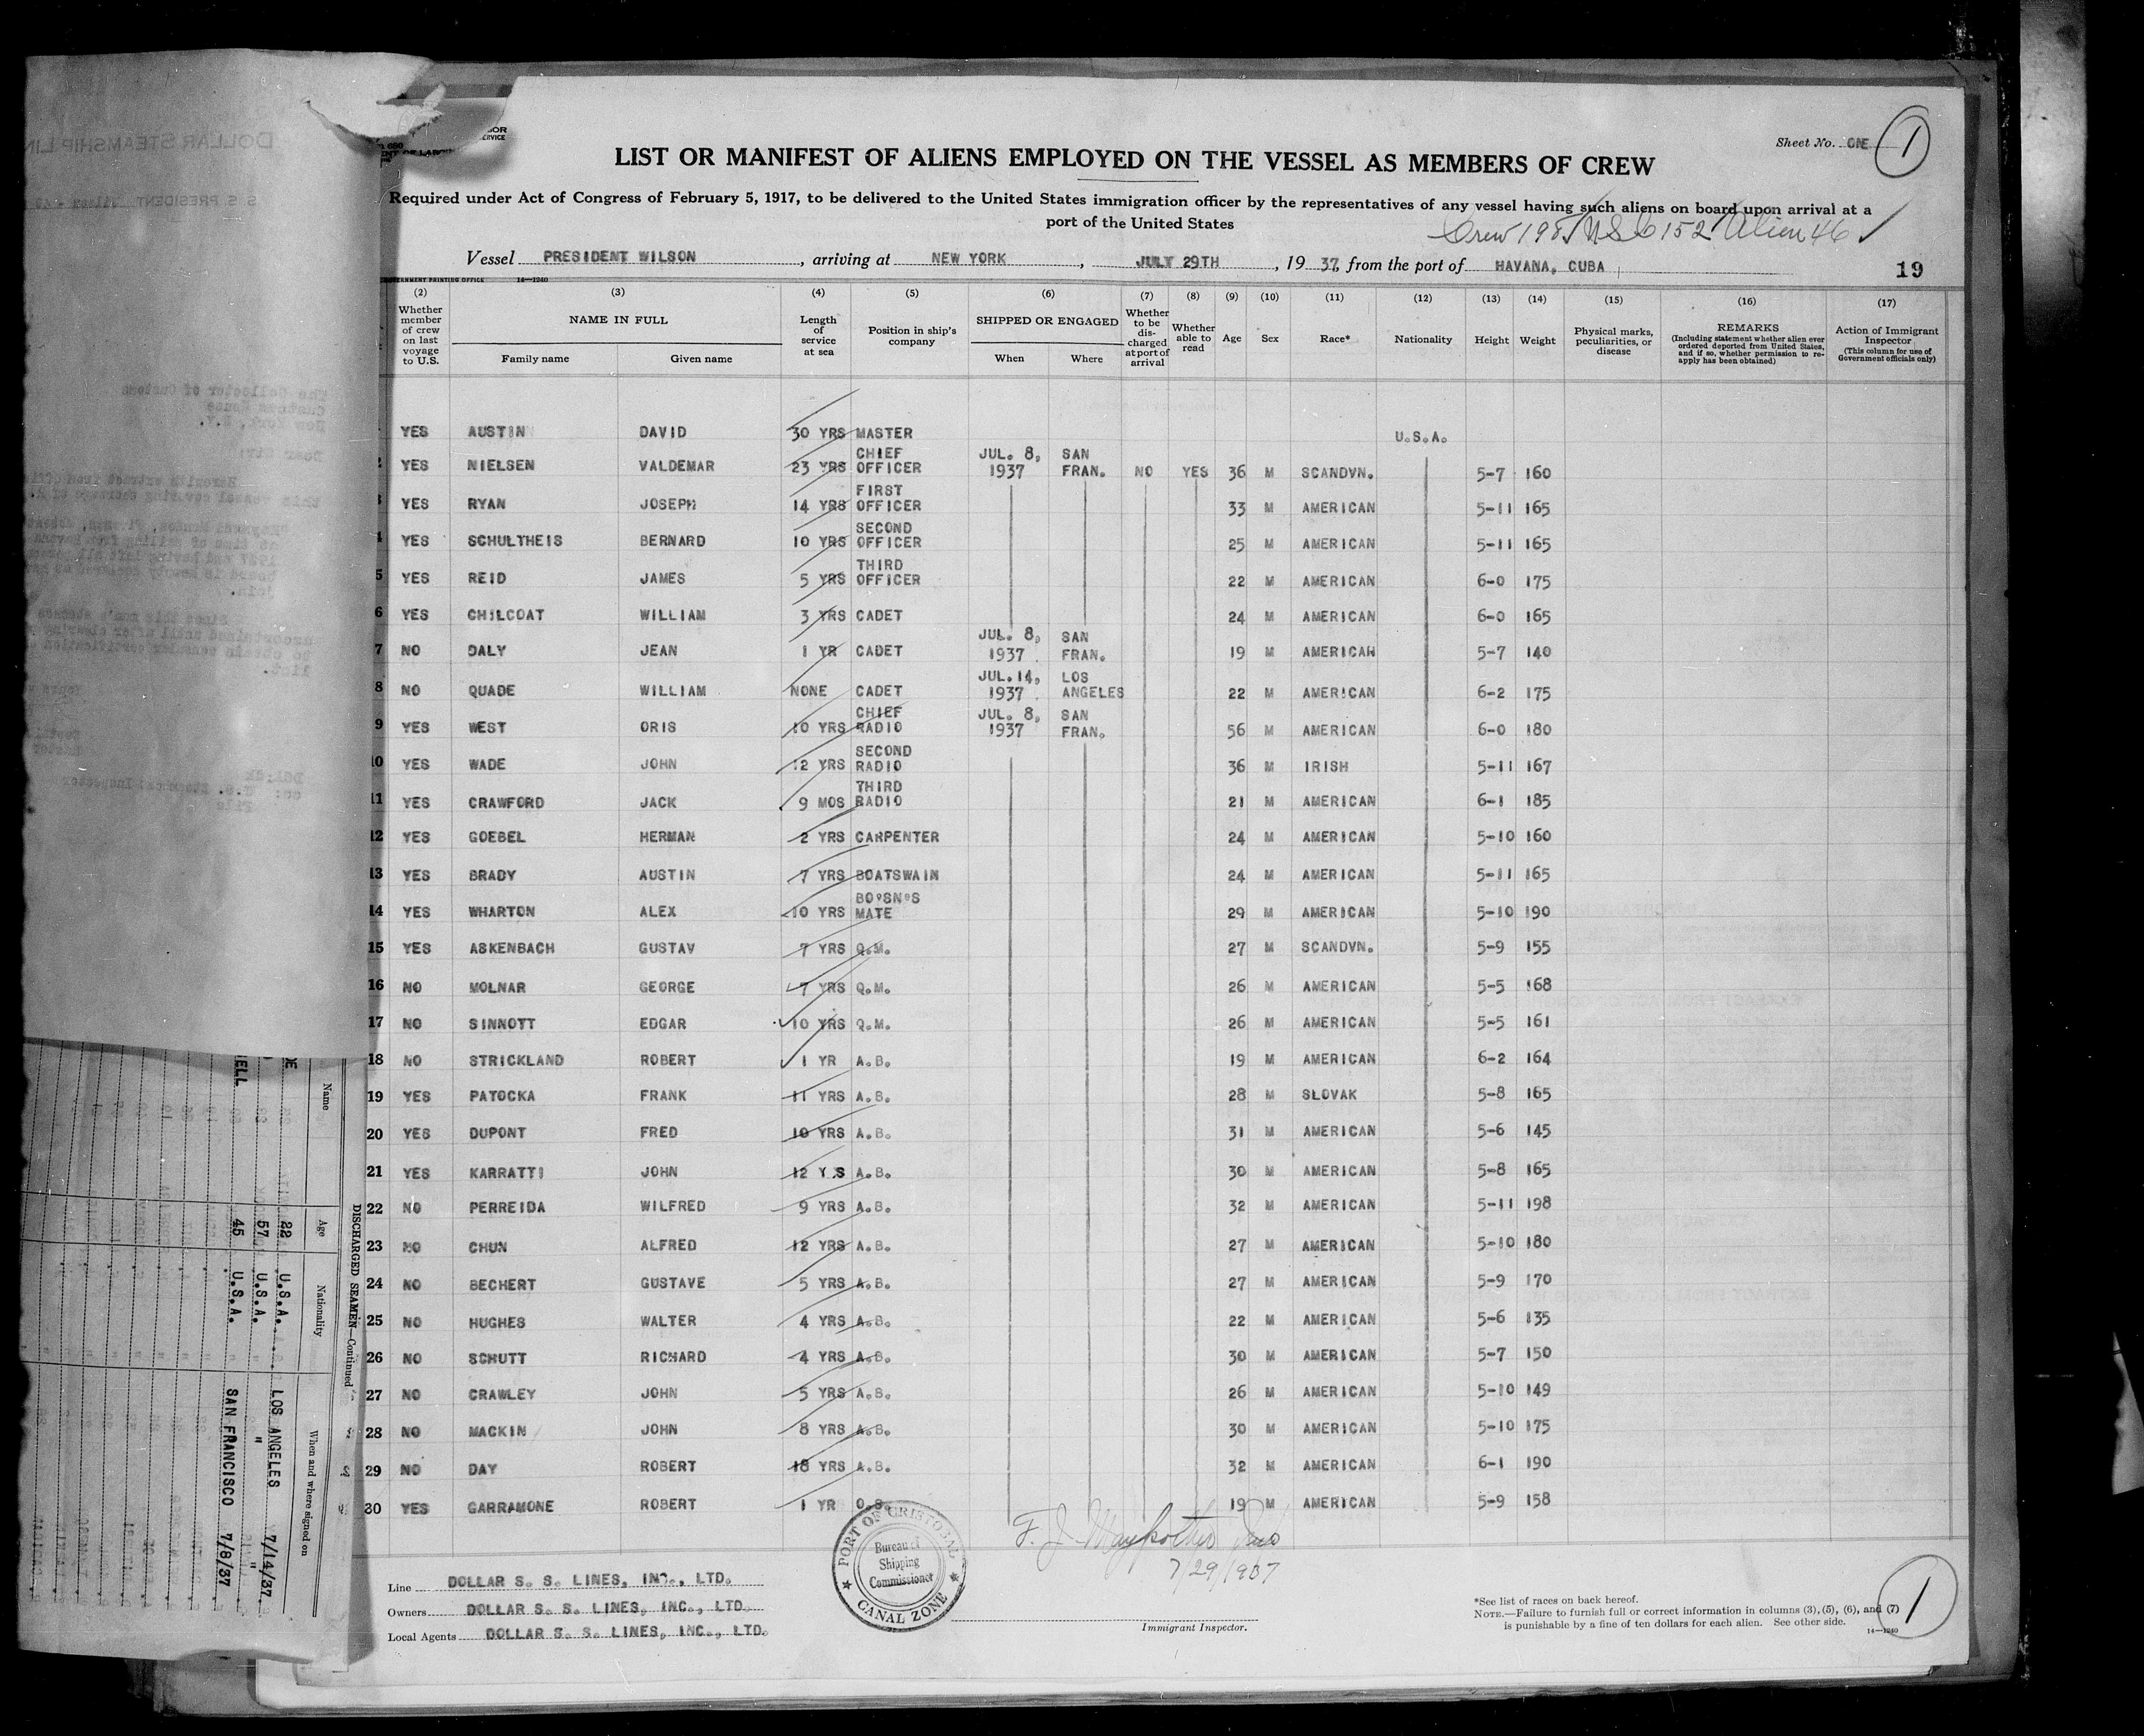 Sheet No. ONE 1
LIST OR MANIFEST OF ALIENS EMPLOYED ON THE VESSEL AS MEMBERS OF CREW
Required under Act of Congress of February 5, 1917, to be delivered to the United States immigration officer by the representatives of any vessel having such aliens on board upon arrival at a
port of the United States
Crew 198 USC 152 Alien 46
Vessel PRESIDENT WILSON, arriving at NEW YORK, JULY 29TH, 1937, from the port of HAVANA, CUBA
19
(2) (3) (4) (5) (6) (7) (8) (9) (10) (11) (12) (13) (14) (15) (16) (17)
Whether member of crew on last voyage to U.S. NAME IN FULL Family name Given name Length of service at sea Position in ship's company SHIPPED OR ENGAGED When Where Whether to be discharged at port of arrival Whether able to read Age Sex Race* Nationality Height Weight Physical marks, peculiarities, or disease REMARKS (Including statement whether alien ever ordered deported from United States, and if so, whether permission to reapply has been obtained) Action of Immigrant Inspector (This column for use of Government officials only)
YES AUSTIN DAVID 30 YRS MASTER U.S.A.
2 YES NIELSEN VALDEMAR 23 YRS CHIEF OFFICER JUL. 8, 1937 SAN FRAN. NO YES 36 M SCANDVN. 5-7 160
3 YES RYAN JOSEPH 14 YRS FIRST OFFICER 33 M AMERICAN 5-11 165
4 YES SCHULTHEIS BERNARD 10 YRS SECOND OFFICER 25 M AMERICAN 5-11 165
5 YES REID JAMES 5 YRS THIRD OFFICER 22 M AMERICAN 6-0 175
6 YES CHILCOAT WILLIAM 3 YRS CADET 24 M AMERICAN 6-0 165
7 NO DALY JEAN 1 YR CADET JUL. 8, 1937 SAN FRAN. 19 M AMERICAN 5-7 140
8 NO QUADE WILLIAM NONE CADET JUL. 14, 1937 LOS ANGELES 22 M AMERICAN 6-2 175
9 YES WEST ORIS 10 YRS CHIEF RADIO JUL. 8, 1937 SAN FRAN. 56 M AMERICAN 6-0 180
10 YES WADE JOHN 12 YRS SECOND RADIO 36 M IRISH 5-11 167
11 YES CRAWFORD JACK 9 MOS THIRD RADIO 21 M AMERICAN 6-1 185
12 YES GOEBEL HERMAN 2 YRS CARPENTER 24 M AMERICAN 5-10 160
13 YES BRADY AUSTIN 7 YRS BOATSWAIN 24 M AMERICAN 5-11 165
14 YES WHARTON ALEX 10 YRS BO'SN'S MATE 29 M AMERICAN 5-10 190
15 YES ASKENBACH GUSTAV 7 YRS Q.M. 27 M SCANDVN. 5-9 155
16 NO MOLNAR GEORGE 7 YRS Q.M. 26 M AMERICAN 5-5 168
17 NO SINNOTT EDGAR 10 YRS Q.M. 26 M AMERICAN 5-5 161
18 NO STRICKLAND ROBERT 1 YR A.B. 19 M AMERICAN 6-2 164
19 YES PATOCKA FRANK 11 YRS A.B. 28 M SLOVAK 5-8 165
20 YES DUPONT FRED 10 YRS A.B. 31 M AMERICAN 5-6 145
21 YES KARRATTI JOHN 12 Y.S A.B. 30 M AMERICAN 5-8 165
22 NO PERREIDA WILFRED 9 YRS A.B. 32 M AMERICAN 5-11 198
23 NO CHUN ALFRED 12 YRS A.B. 27 M AMERICAN 5-10 180
24 NO BECHERT GUSTAVE 5 YRS A.B. 27 M AMERICAN 5-9 170
25 NO HUGHES WALTER 4 YRS A.B. 22 M AMERICAN 5-6 135
26 NO SCHUTT RICHARD 4 YRS A.B. 30 M AMERICAN 5-7 150
27 NO CRAWLEY JOHN 5 YRS A.B. 26 M AMERICAN 5-10 149
28 NO MACKIN JOHN 8 YRS A.B. 30 M AMERICAN 5-10 175
29 NO DAY ROBERT 18 YRS A.B. 32 M AMERICAN 6-1 190
30 YES GARRAMONE ROBERT 1 YR O.S. 19 M AMERICAN 5-9 158
7/29/1937
PORT OF CRISTOBAL
Bureau of
Shipping
Commissioner
CANAL ZONE
Line DOLLAR S. S. LINES, INC., LTD.
Owners DOLLAR S. S. LINES, INC., LTD.
Local Agents DOLLAR S. S. LINES, INC., LTD.
Immigrant Inspector.
*See list of races on back hereof.
NOTE.—Failure to furnish full or correct information in columns (3), (5), (6), and (7)
is punishable by a fine of ten dollars for each alien. See other side.
14—1240
1
DISCHARGED SEAMEN—Continued
Name Age Nationality When and where signed on
22 U.S.A. LOS ANGELES 7/14/37
57 U.S.A. " "
ELL 45 U.S.A. SAN FRANCISCO 7/8/37